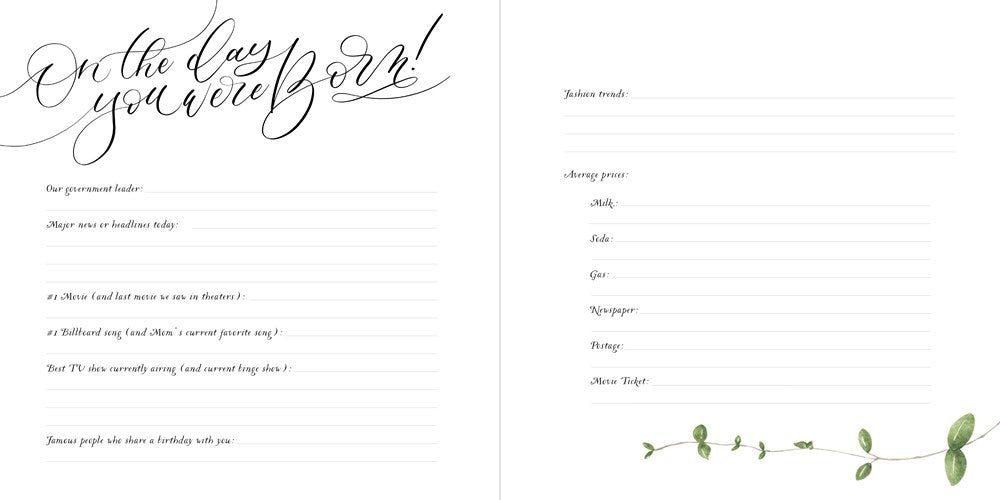 On the day
you were Born!
Our government leader:
Major news or headlines today:
#1 Movie (and last movie we saw in theaters):
#1 Billboard song (and Mom's current favorite song):
Best TV show currently airing (and current binge show):
Famous people who share a birthday with you:
Fashion trends:
Average prices:
Milk:
Soda:
Gas:
Newspaper:
Postage:
Movie Ticket: